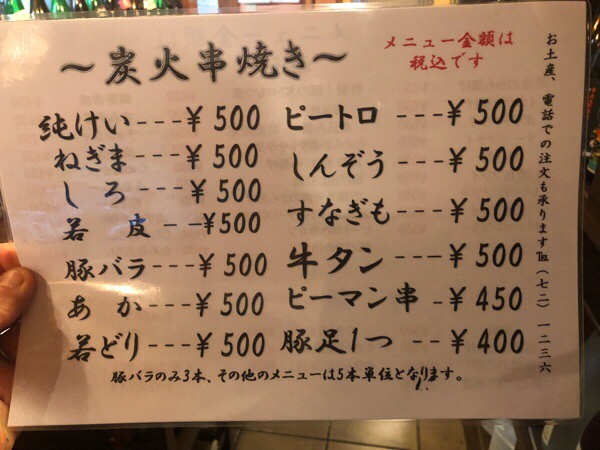 ～炭火串焼き～
メニュー金額は
税込です
純けい---¥500
ねぎま---¥500
しろ---¥500
若皮--¥500
豚バラ---¥500
あか---¥500
若どり---¥500
ピートロ---¥500
しんぞう---¥500
すなぎも---¥500
牛タン---¥500
ピーマン串-¥450
豚足1つ--¥400
豚バラのみ3本、その他のメニューは5本単位となります。
お土産、電話での注文も承ります℡(七二)一二三六